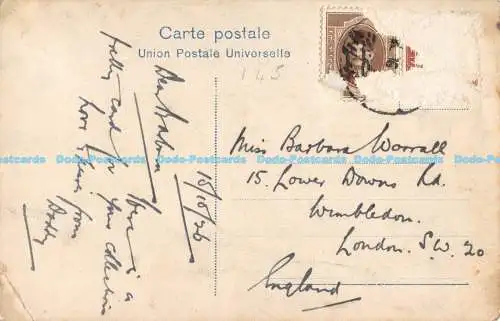 Carte postale
Union Postale Universelle
143
18/10/26
Dear Barbara
Here is a
pretty card for your collection
Love & kisses from
Daddy
Miss Barbara Worrall
15. Lower Downs Rd.
Wimbledon.
London. S.W. 20
England
Dodo-Postcards Dodo-Postcards Dodo-Postcards Dodo-Postcards Dodo-Postcards